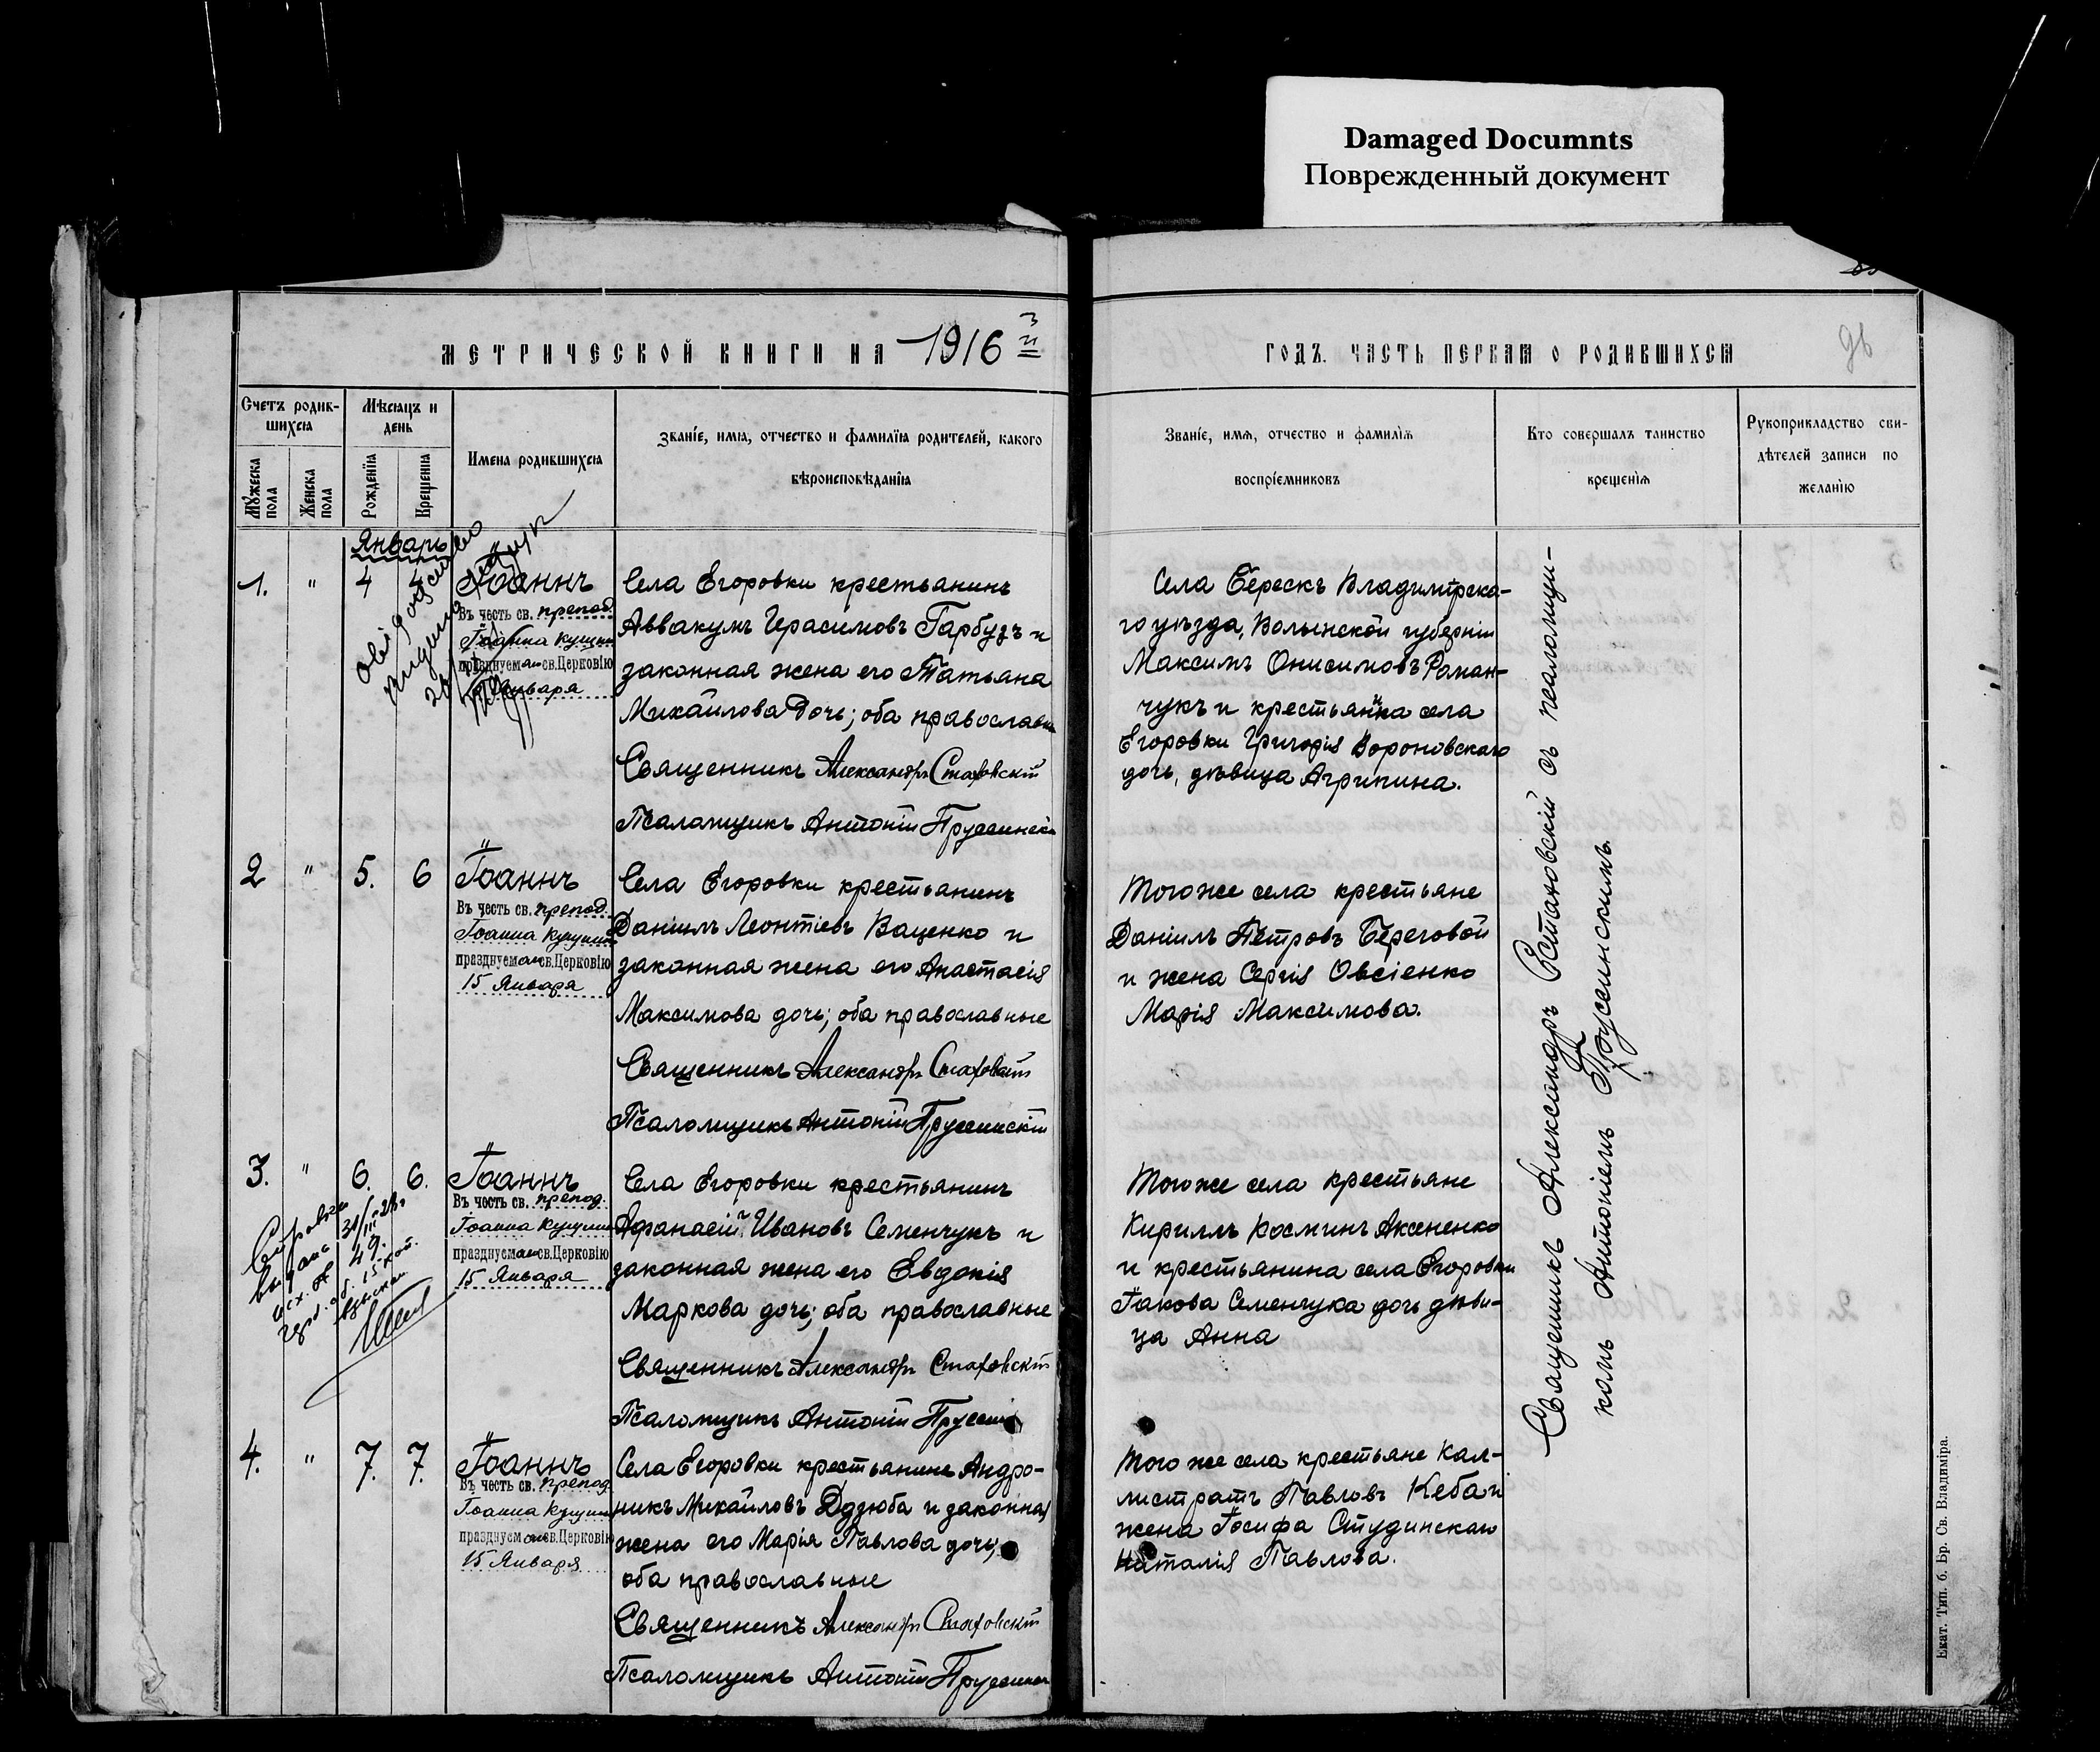 Damaged Documnts
Поврежденный документ
МЕТРИЧЕСКОЙ КНИГИ НА 1916 й
ГОДЪ. ЧАСТЬ ПЕРВАЯ О РОДИВШИХСЯ
Счетъ родив-
шихся
Мужеска
пола
Женска
пола
Мѣсяцъ и
день
Рожденія
Крещенія
Имена родившихся
Званіе, имя, отчество и фамилія родителей, какого
вѣроисповѣданія
Званіе, имя, отчество и фамилія
воспріемниковъ
Кто совершалъ таинство
крещенія
Рукоприкладство сви-
дѣтелей записи по
желанію
Январь
1. " 4 4 Іоаннъ
Въ честь св. препод.
Іоанна Кущни
празднуемаго св. Церковію
Января
Села Егоровки крестьянинъ
Аввакумъ Герасимовъ Гарбузъ и
законная жена его Татьяна
Михайлова дочь; оба православн
Священникъ Александръ
Псаломщикъ Антоній
Села Берескъ Владимірска-
го уѣзда, Волынской губерніи
Максимъ Онисимовъ Роман-
чукъ и крестьянка села
Егоровки Григорія Вороновскаго
дочь, дѣвица Агрипина.
2 " 5. 6 Іоаннъ
Въ честь св. препод.
Іоанна Кущни
празднуемаго св. Церковію
15 Января
Села Егоровки крестьянинъ
Даніилъ Леонтіевъ Ваценко и
законная жена его Анастасія
Максимова дочь; оба православные
Священникъ Александръ
Псаломщикъ Антоній
Того же села крестьяне
Даніилъ Петровъ Береговой
и жена Сергія Овсіенко
Марія Максимова.
3. " 6. 6. Іоаннъ
Въ честь св. препод.
Іоанна Кущни
празднуемаго св. Церковію
15 Января
Справка
выдана
49.
Села Егоровки крестьянинъ
Афанасій Ивановъ Семенчукъ и
законная жена его Евдокія
Маркова дочь; оба православные
Священникъ Александръ
Псаломщикъ Антоній
Того же села крестьяне
Кириллъ Косминъ Аксененко
и крестьянина села Егоровки
Іакова Семенчука дочь дѣви-
ца Анна
4. " 7. 7. Іоаннъ
Въ честь св. препод.
Іоанна Кущни
празднуемаго св. Церковію
15 Января
Села Егоровки крестьянинъ Андро-
никъ Михайловъ Дзюба и законная
жена его Марія Павлова дочь;
оба православные
Священникъ Александръ
Псаломщикъ Антоній
Того же села крестьяне Кал-
листратъ Павловъ Кеба и
жена Іосифа Студинскаго
Наталія Павлова.
Священникъ Александръ съ псаломщи-
комъ Антоніемъ Пруссинскимъ.
Екат. Тип. б. Бр. Св. Владиміра.